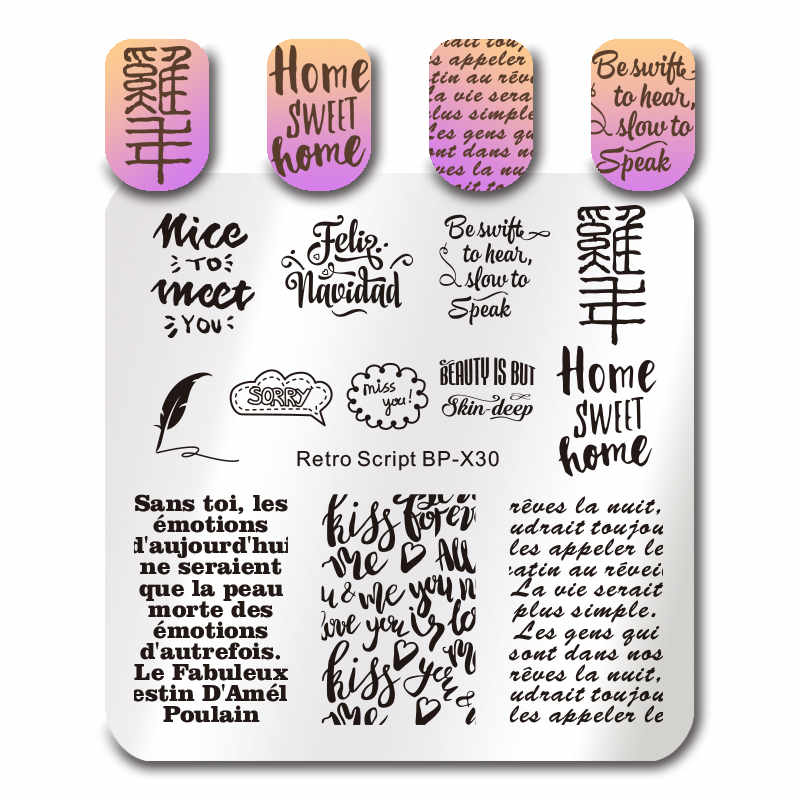 Home
SWEET
home
mait touj
s appeler
tin au rêve
la vie sera
lus simple
Les gens qu
ont dans no
ves la nui
Be swift
to hear,
slow to
Speak
nice
TO
meet
YOU
Feliz
Navidad
Be swift
to hear,
slow to
Speak
Home
SWEET
home
SORRY
miss
you!
BEAUTY IS BUT
Skin-deep
Retro Script BP-X30
Sans toi, les
émotions
d'aujourd'hui
ne seraient
que la peau
morte des
émotions
d'autrefois.
Le Fabuleux
estin D'Amél
Poulain
kiss forev
me All
u & me you
love you is lo
kiss you
me
rêves la nuit,
udrait toujou
les appeler le
atin au réveil
La vie serait
plus simple.
Les gens qui
sont dans nos
rêves la nuit,
udrait toujou
les appeler le